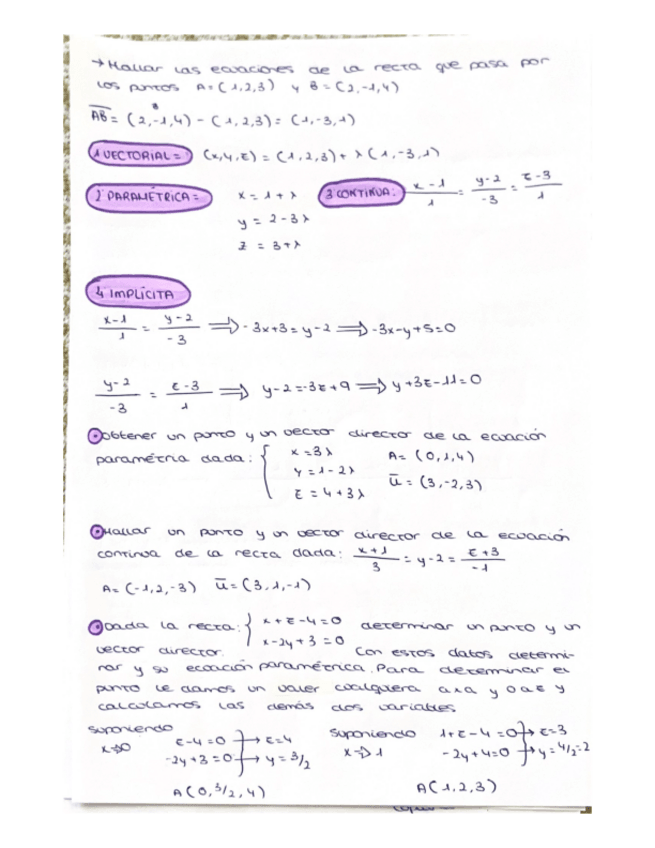 → Hallar las ecuaciones de la recta que pasa por
los puntos A=(1,2,3) y B=(2,-1,4)
AB = (2,-1,4) - (1,2,3) = (1,-3,1)
1 VECTORIAL = (x,y,z) = (1,2,3) + λ(1,-3,1)
2 PARAMÉTRICA = x = 1 + λ
y = 2 - 3λ
z = 3 + λ
3 CONTINUA: x-1/1 = y-2/-3 = z-3/1
4 IMPLÍCITA
x-1/1 = y-2/-3 ⟹ -3x+3 = y-2 ⟹ -3x-y+5=0
y-2/-3 = z-3/1 ⟹ y-2 = -3z+9 ⟹ y+3z-11=0
Obtener un punto y un vector director de la ecuación
paramétria dada: { x = 3λ A = (0,1,4)
y = 1 - 2λ u = (3,-2,3)
z = 4 + 3λ
Hallar un punto y un vector director de la ecuación
continua de la recta dada: x+1/3 = y-2 = z+3/-1
A = (-1,2,-3) u = (3,1,-1)
Dada la recta: { x+z-4=0 determinar un punto y un
x-2y+3=0
vector director. Con estos datos determi-
nar y su ecuación paramétrica. Para determinar el
punto le damos un valor cualquiera a x a y o a z y
calculamos las demás dos variables
suponiendo
x⇒0 z-4=0 → z=4
-2y+3=0 → y=3/2
A(0,3/2,4)
suponiendo 1+z-4=0 → z=3
x⇒1 -2y+4=0 → y=4/2=2
A(1,2,3)